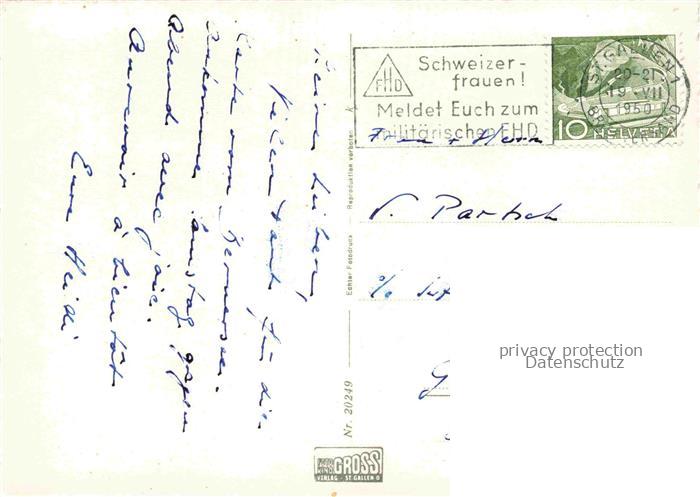 Meine Lieben,
Vielen Dank für die
Karte vom Bernersee.
Ankomme Samstag gegen
Abend avec joie.
Aurevoir à bientôt
Eure Heidi
FHD
Schweizer-
frauen!
Meldet Euch zum
militärischen FHD
ST. GALLEN 1
20-21
19. VII
1950
BRIEFVERSAND
10 HELVETIA
Frau + Herr
V. Partsch
c/o
G
Reproduktion verboten
Echter Fotodruck
Nr. 20249
GROSS
VERLAG - ST GALLEN O
privacy protection
Datenschutz